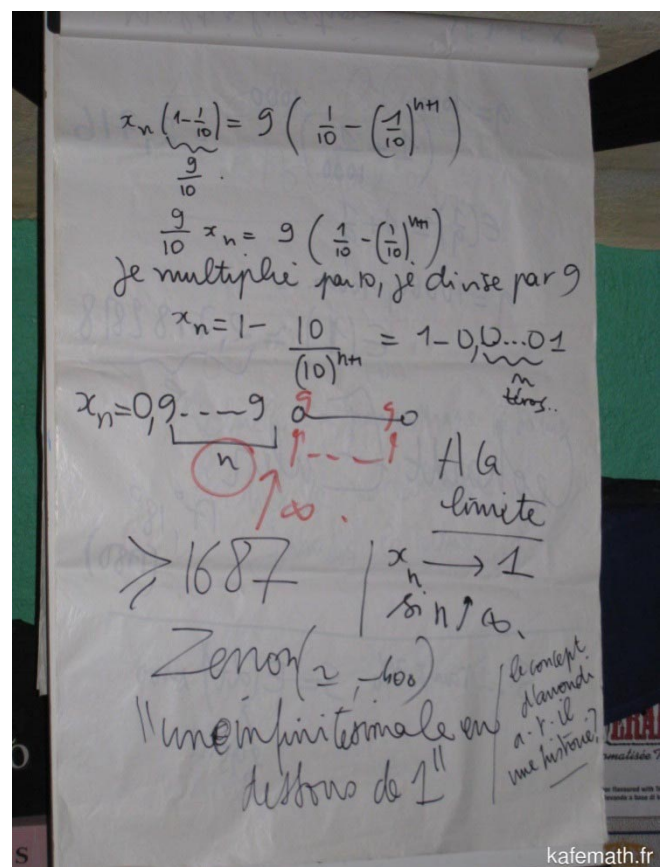 x_n (1 - 1/10) = 9 ( 1/10 - (1/10)^{n+1} )
9/10 .
9/10 x_n = 9 ( 1/10 - (1/10)^{n+1} )
je multiplie par 10, je divise par 9
x_n = 1 - 10/(10)^{n+1} = 1 - 0,0...01
n
zéros..
x_n = 0,9----9 9 9
n
---
∞.
A la
limite
⩾ 1687
x_n → 1
si n ↑ ∞.
Zenon (≃ -400)
"une infinitésimale en
dessous de 1"
le concept
a-t-il
une histoire?
matisée
s
kafemath.fr